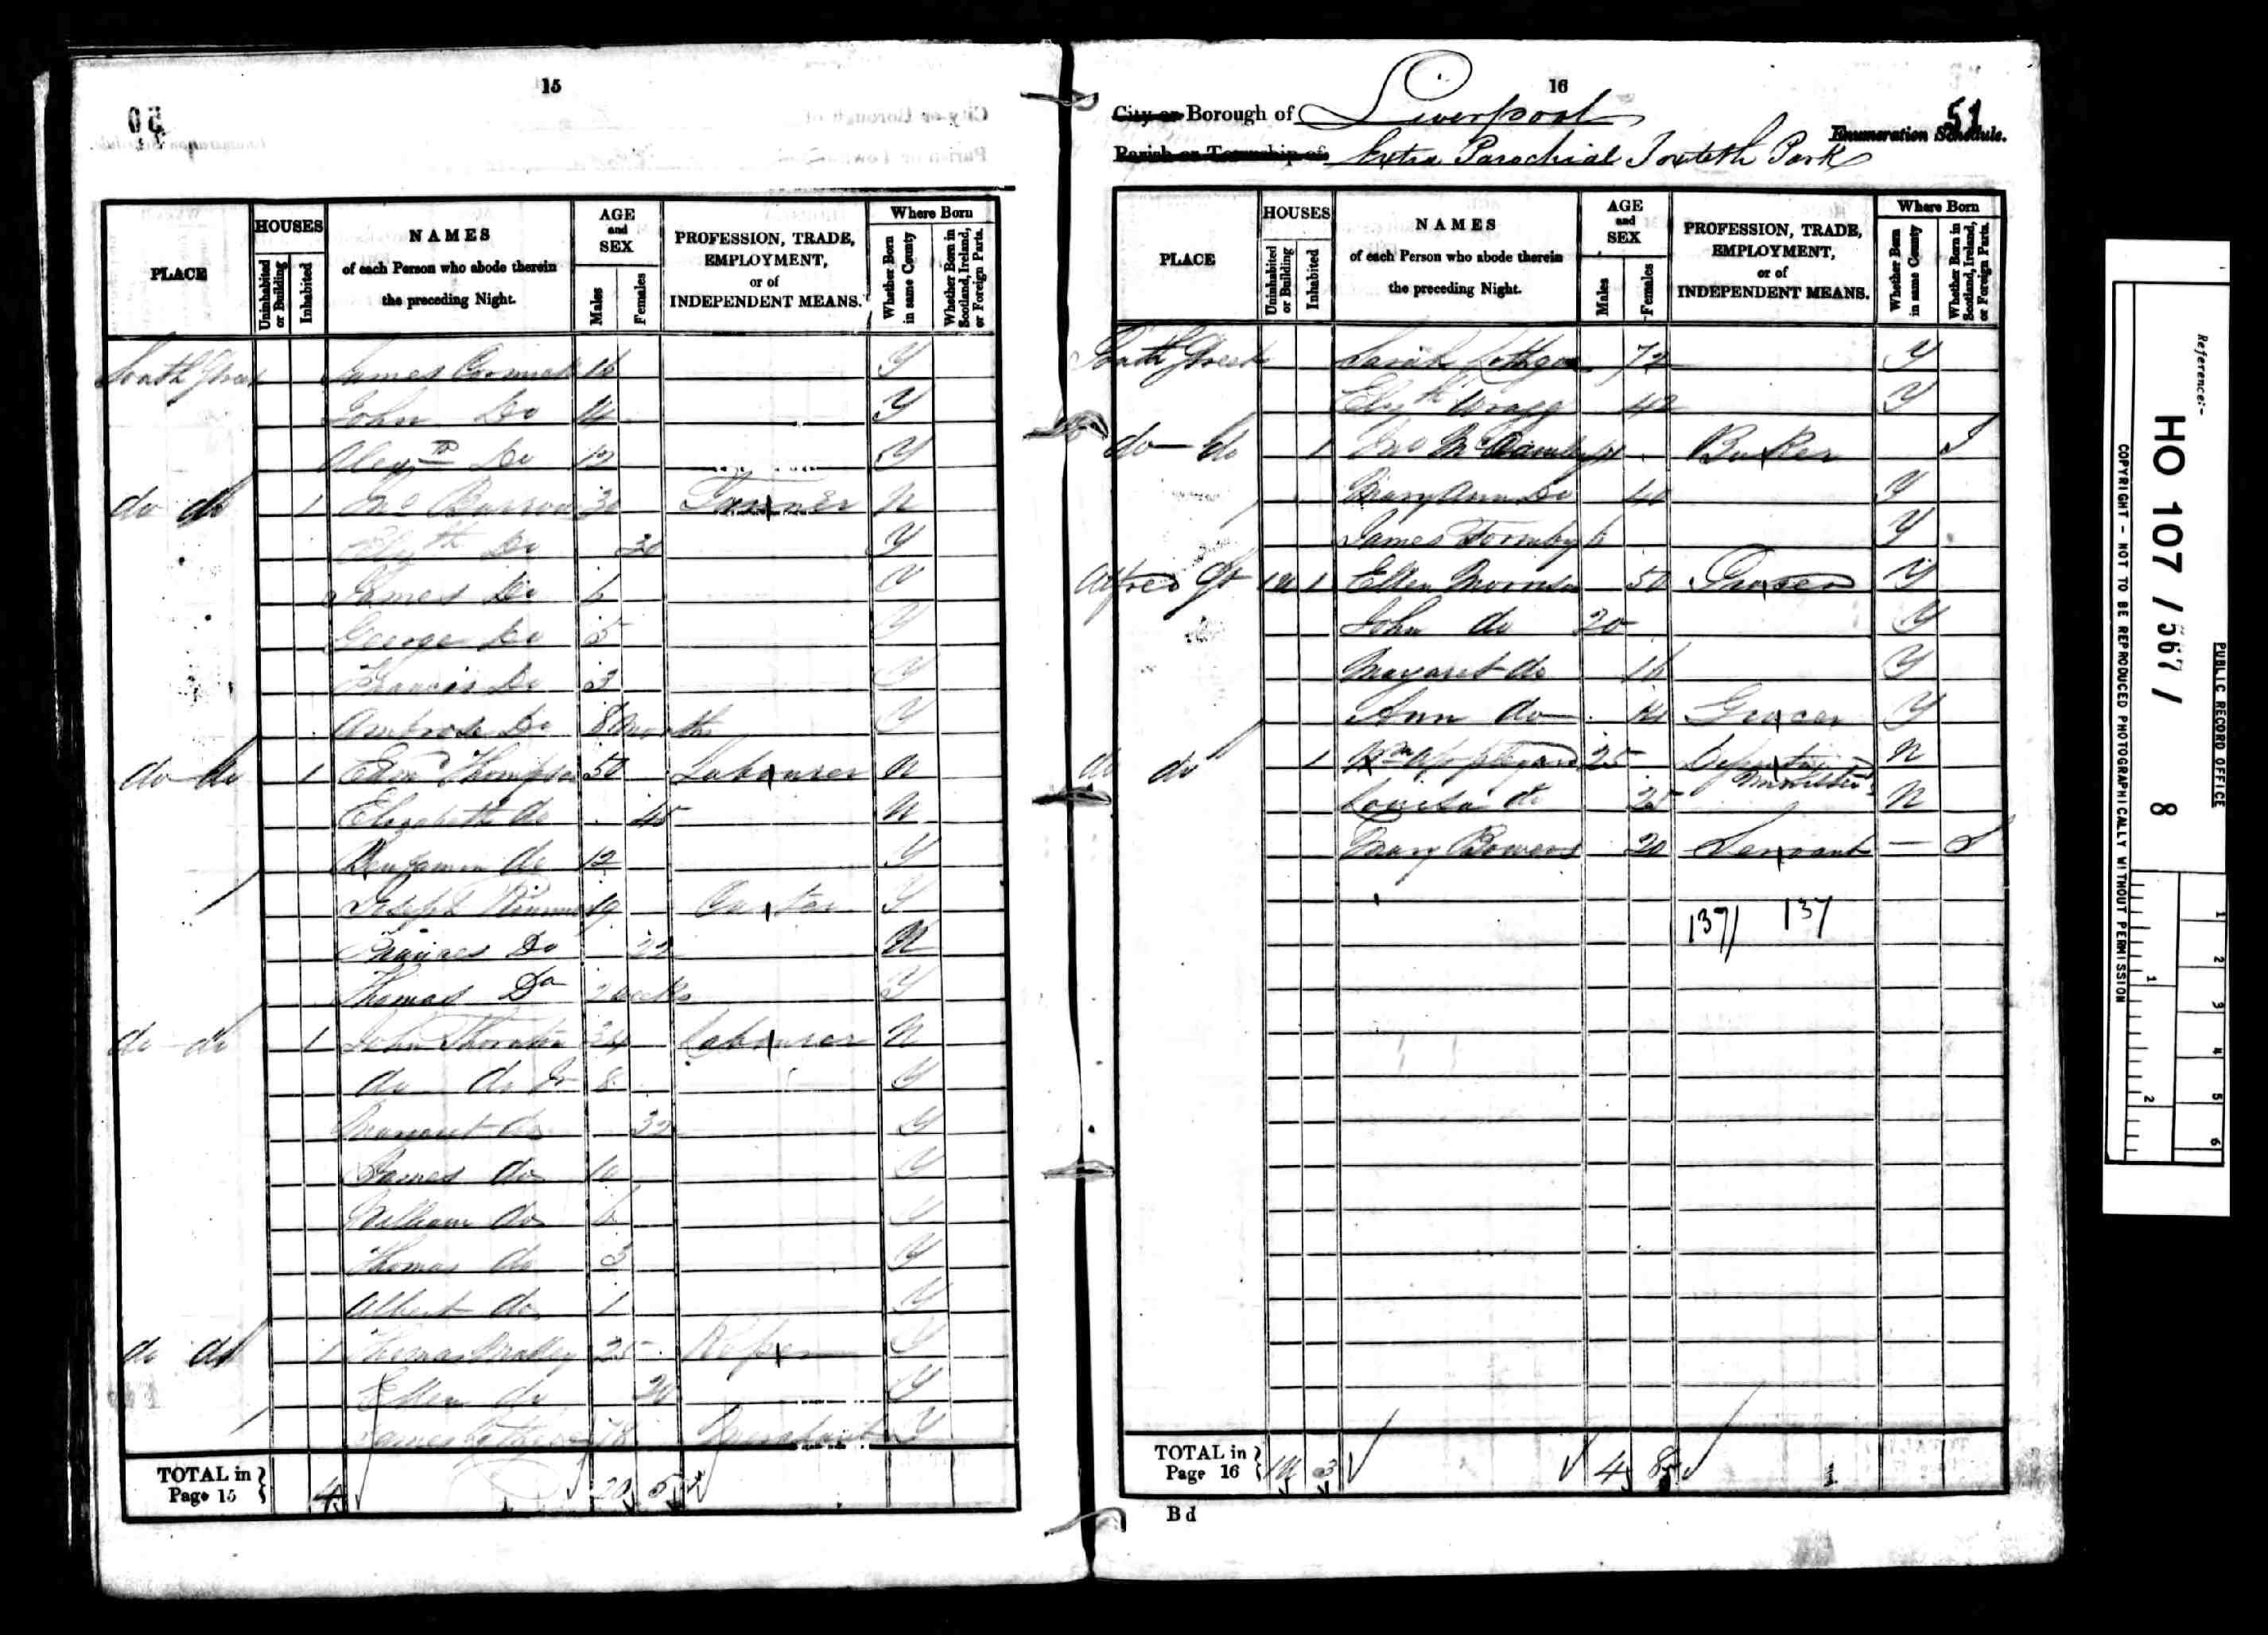 15
50
PLACE
HOUSES
Uninhabited or Building
Inhabited
NAMES
of each Person who abode therein
the preceding Night.
AGE and SEX
Males
Females
PROFESSION, TRADE,
EMPLOYMENT,
or of
INDEPENDENT MEANS.
Where Born
Whether Born in same County
Whether Born in Scotland, Ireland, or Foreign Parts.
South Street James 16 Y
John Do 14 Y
Do 12 Y
do do 1 Jno Barrow 30 N
Elizth Do 30 Y
James Do 6 Y
George Do 5 Y
Francis Do 3 Y
Ambrose Do 8 Months Y
do do 1 Edmd Thompson 50 Labourer N
Elizabeth do 45 N
Benjamin do 12 Y
Joseph 19 Y
Frances Do 22 N
Thomas Do 2 weeks Y
do do 1 John Thornton 34 Labourer N
do do Jr 8 Y
Margaret do 32 Y
James do 10 Y
William do 6 Y
Thomas do 3 Y
Albert do 1 Y
do do 1 Thomas 25 Y
Ellen do 20 Y
James 78 Y
TOTAL in Page 15 4 20 5
16
City or Borough of Liverpool
51
Enumeration Schedule.
Parish or Township of Extra Parochial Toxteth Park
PLACE
HOUSES
Uninhabited or Building
Inhabited
NAMES
of each Person who abode therein
the preceding Night.
AGE and SEX
Males
Females
PROFESSION, TRADE,
EMPLOYMENT,
or of
INDEPENDENT MEANS.
Where Born
Whether Born in same County
Whether Born in Scotland, Ireland, or Foreign Parts.
South Street Sarah 72 Y
Elizth Wragg 42 Y
do do 1 Jno I
Mary Ann Do 40 Y
James Formby 6 Y
Alfred St 1 Ellen 50 Grocer Y
John do 20 Y
Margaret do 16 Y
Ann do Grocer Y
do do 1 Wm Appleyard 25 Minister N
Louisa do 25 N
Mary Bowers 20 Servant — I
137 137
TOTAL in Page 16 3 4 8
1
Bd
Reference:-
HO 107 / 567 / 8
PUBLIC RECORD OFFICE
COPYRIGHT - NOT TO BE REPRODUCED PHOTOGRAPHICALLY WITHOUT PERMISSION
1 2 3 4 5 6
1 2